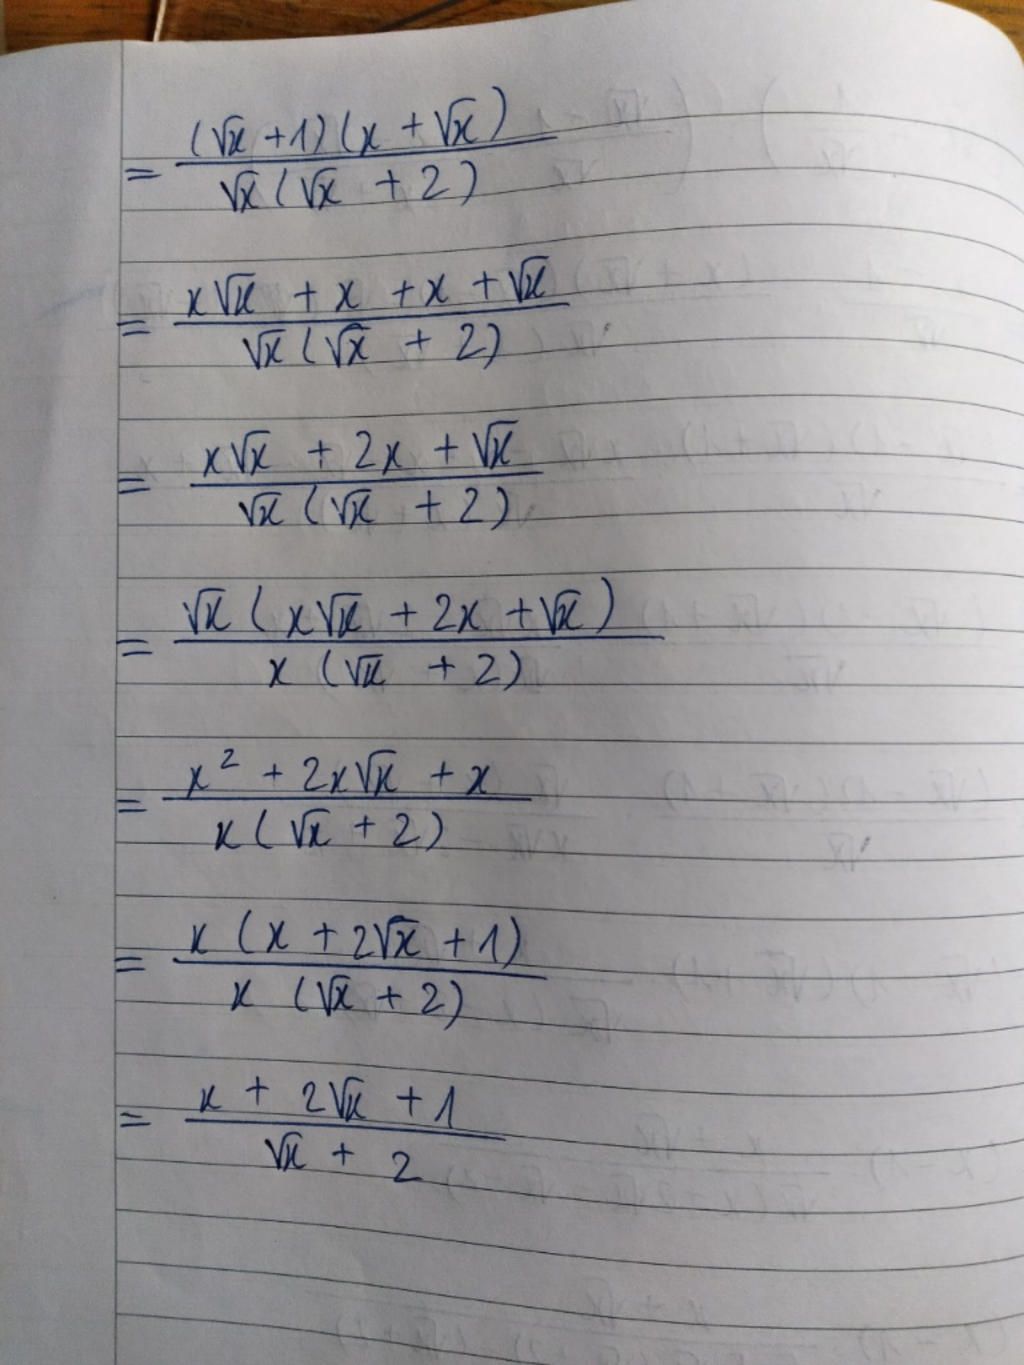 = (√x + 1)(x + √x) / √x(√x + 2)
= x√x + x + x + √x / √x(√x + 2)
= x√x + 2x + √x / √x(√x + 2)
= √x(x√x + 2x + √x) / x(√x + 2)
= x² + 2x√x + x / x(√x + 2)
= x(x + 2√x + 1) / x(√x + 2)
= x + 2√x + 1 / √x + 2